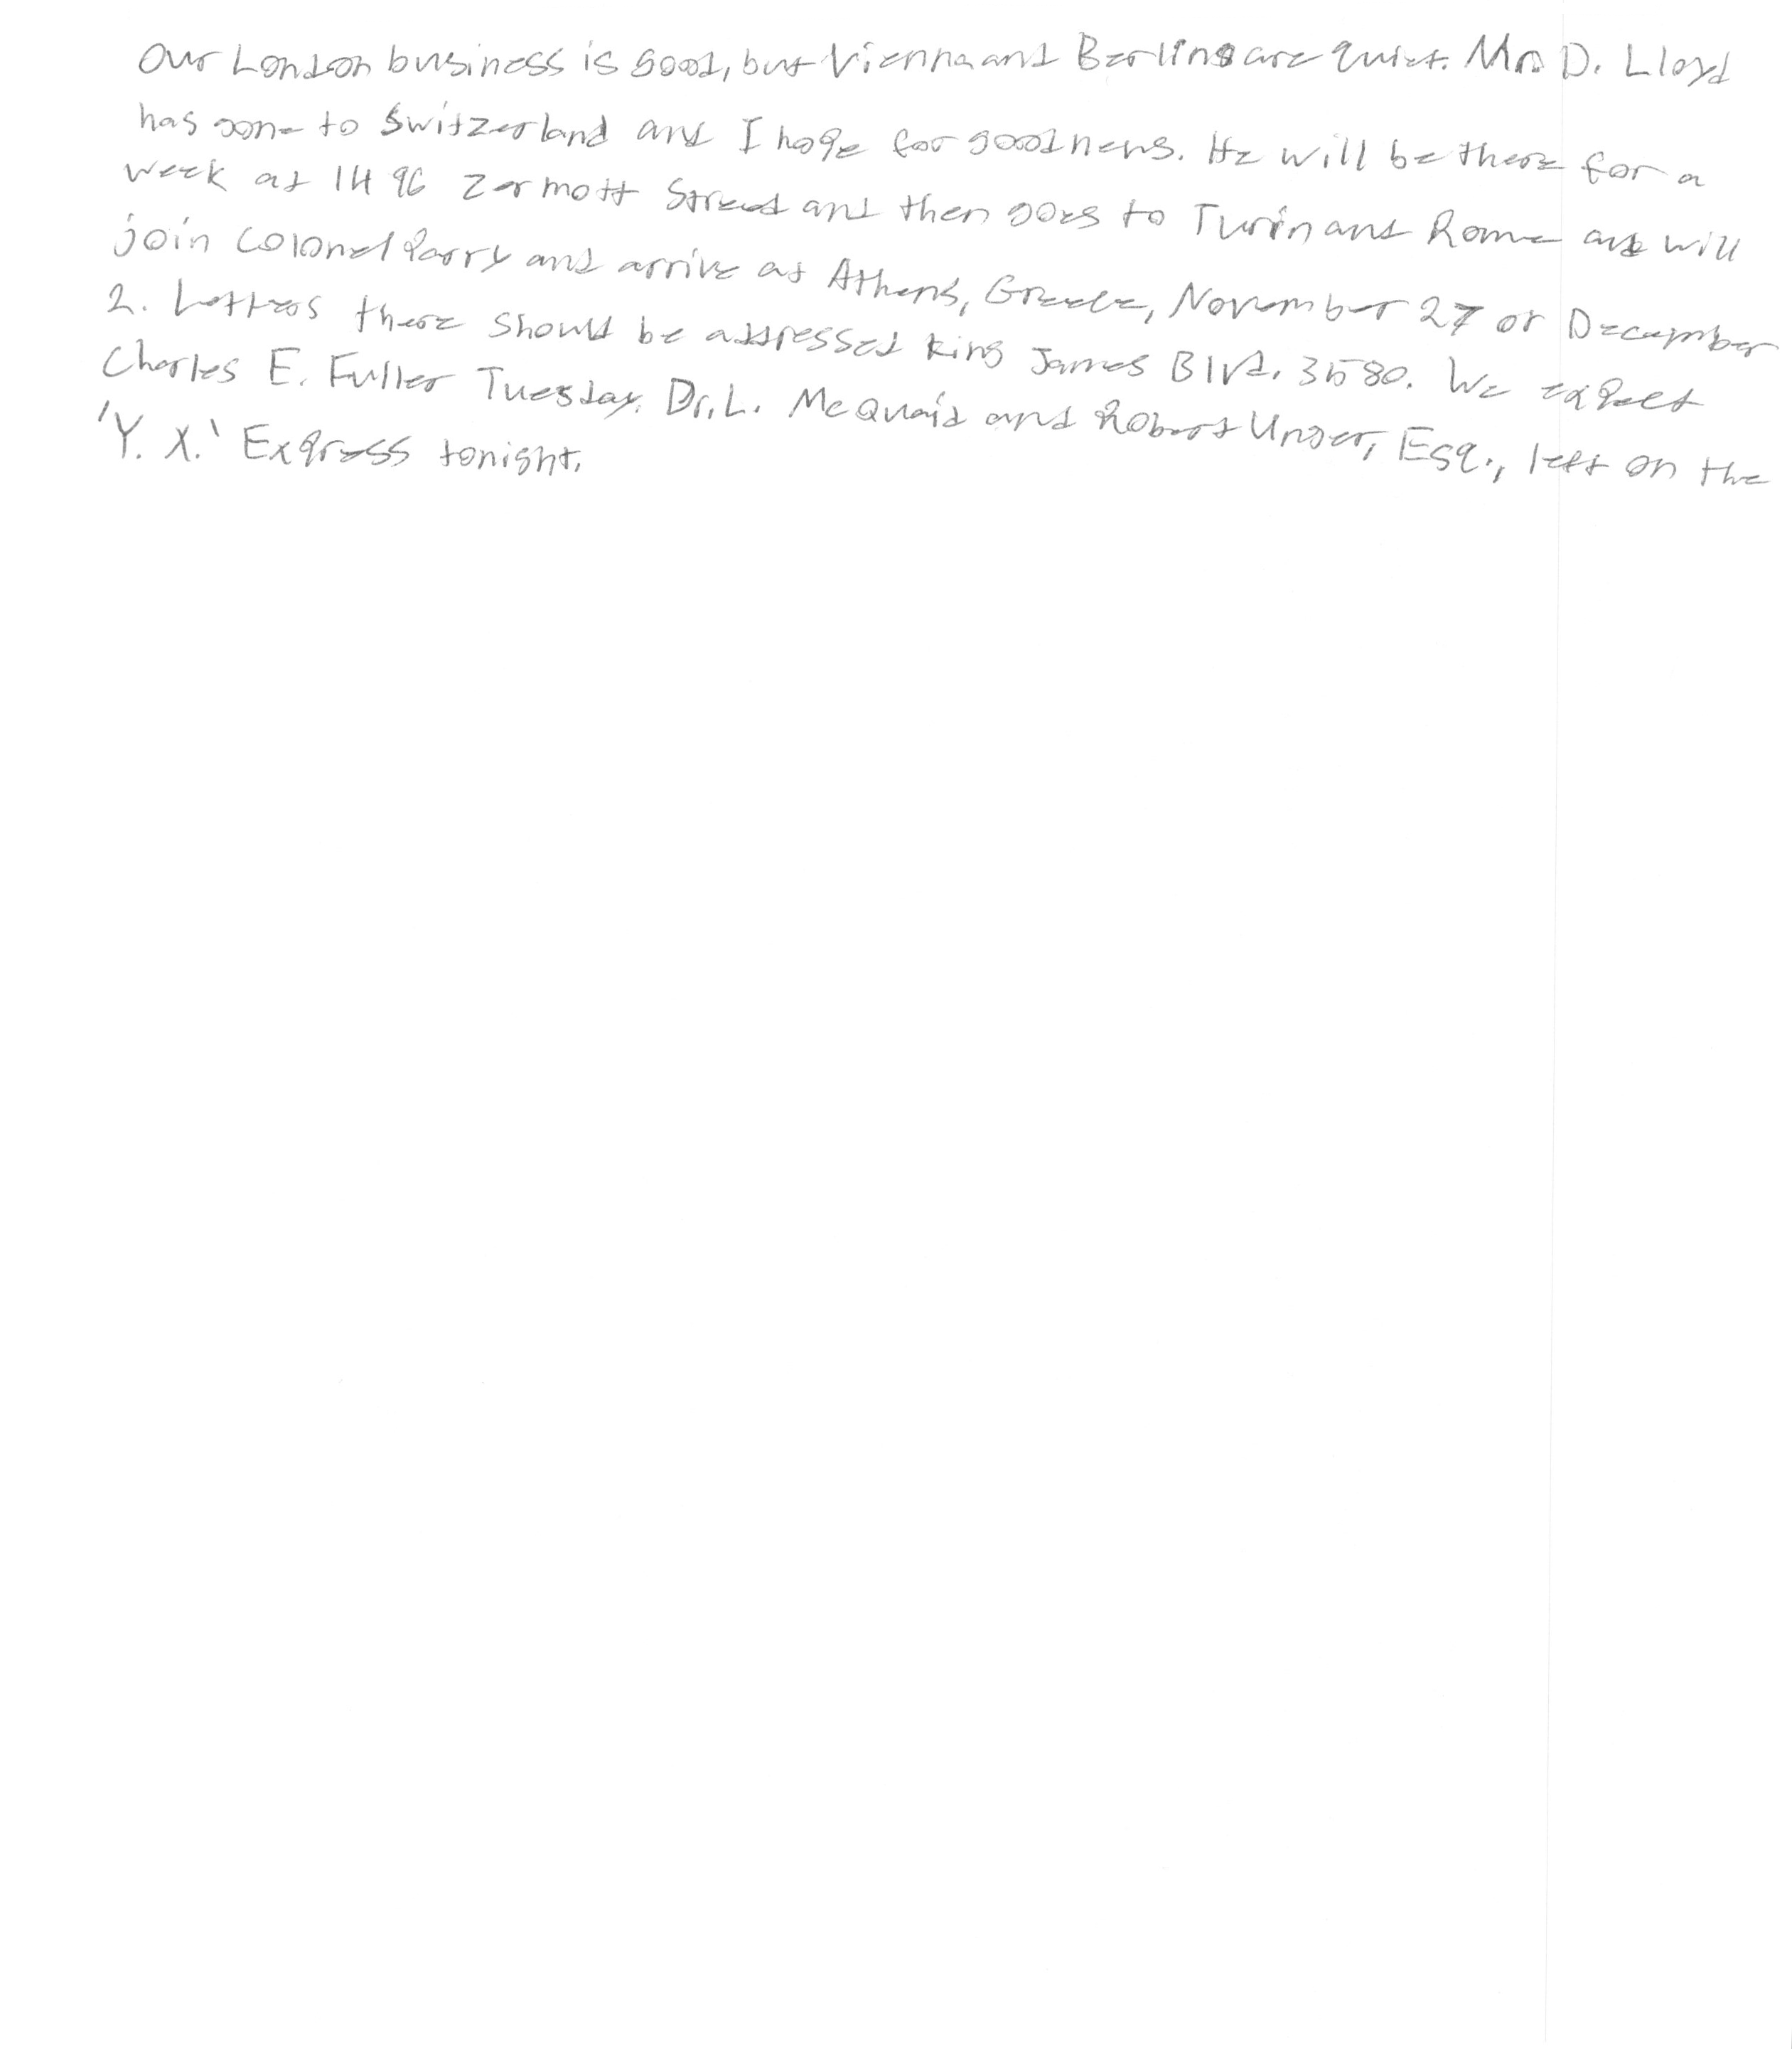 Our London business is good, but Vienna and Berlin are quiet. Mr. D. Lloyd
has gone to Switzerland and I hope for good news. He will be there for a
week at 1496 Zermott Street and then goes to Turin and Rome and will
join Colonel Parry and arrive at Athens, Greece, November 27 or December
2. Letters there should be addressed King James Blvd. 3580. We expect
Charles E. Fuller Tuesday. Dr. L. McQuaid and Robert Unger, Esq., left on the
'Y. X.' Express tonight.